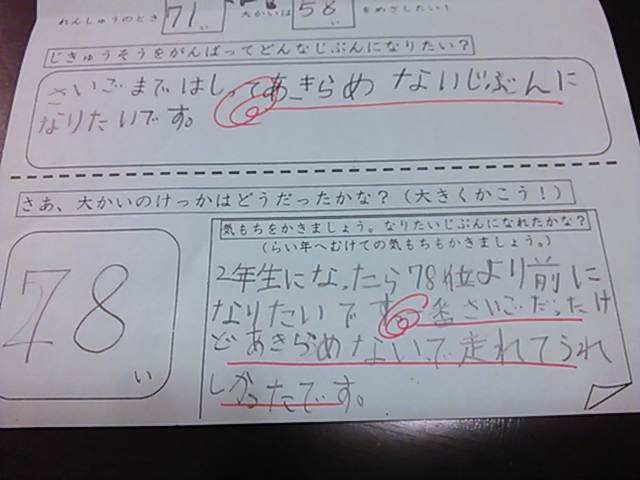 れんしゅうのとき 71 い 大かいは 58 い をめざしたい！
じきゅうそうをがんばってどんなじぶんになりたい？
さいごまではしってあきらめないじぶんに
なりたいです。
さあ、大かいのけっかはどうだったかな？（大きくかこう！）
78 い
気もちをかきましょう。なりたいじぶんになれたかな？
（らい年へむけての気もちもかきましょう。）
2年生になったら78位より前に
なりたいです。一番さいごだったけ
どあきらめないで走れてうれ
しかったです。